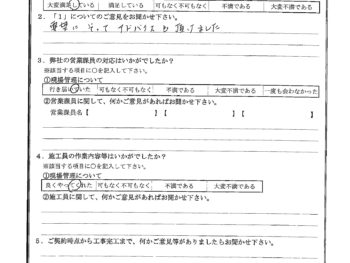 大変満足している 満足している 可もなく不可もなく 不満である 大変不満である
2．「1」についてのご意見をお聞かせ下さい。
要望に そって アドバイスも 頂けました
3．弊社の営業課員の対応はいかがでしたか？
※該当する項目に○を記入して下さい。
①現場管理について
行き届いていた 可もなく不可もなく 不満である 大変不満である 一度も会わなかった
②営業課員に関して、何かご意見があればお聞かせ下さい。
営業課員名【 】【 】【 】
4．施工員の作業内容等はいかがでしたか？
※該当する項目に○を記入して下さい。
①現場管理について
良くやってくれた 可もなく不可もなく 不満である 大変不満である
②施工員に関して、何かご意見がありましたらお聞かせ下さい。
5．ご契約時点から工事完工まで、何かご意見等がありましたらお聞かせ下さい。